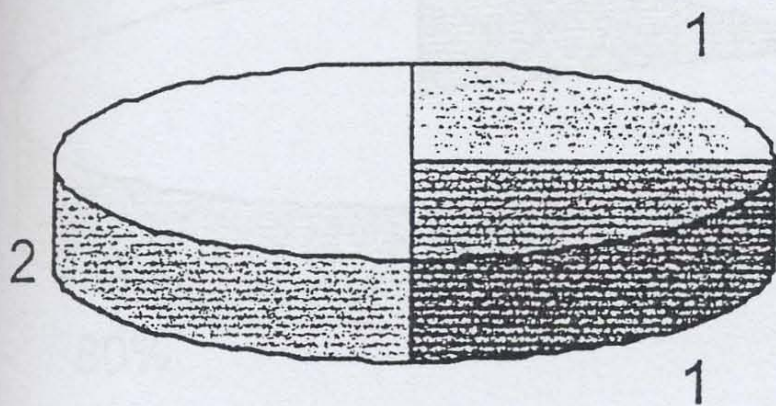 1
2
1